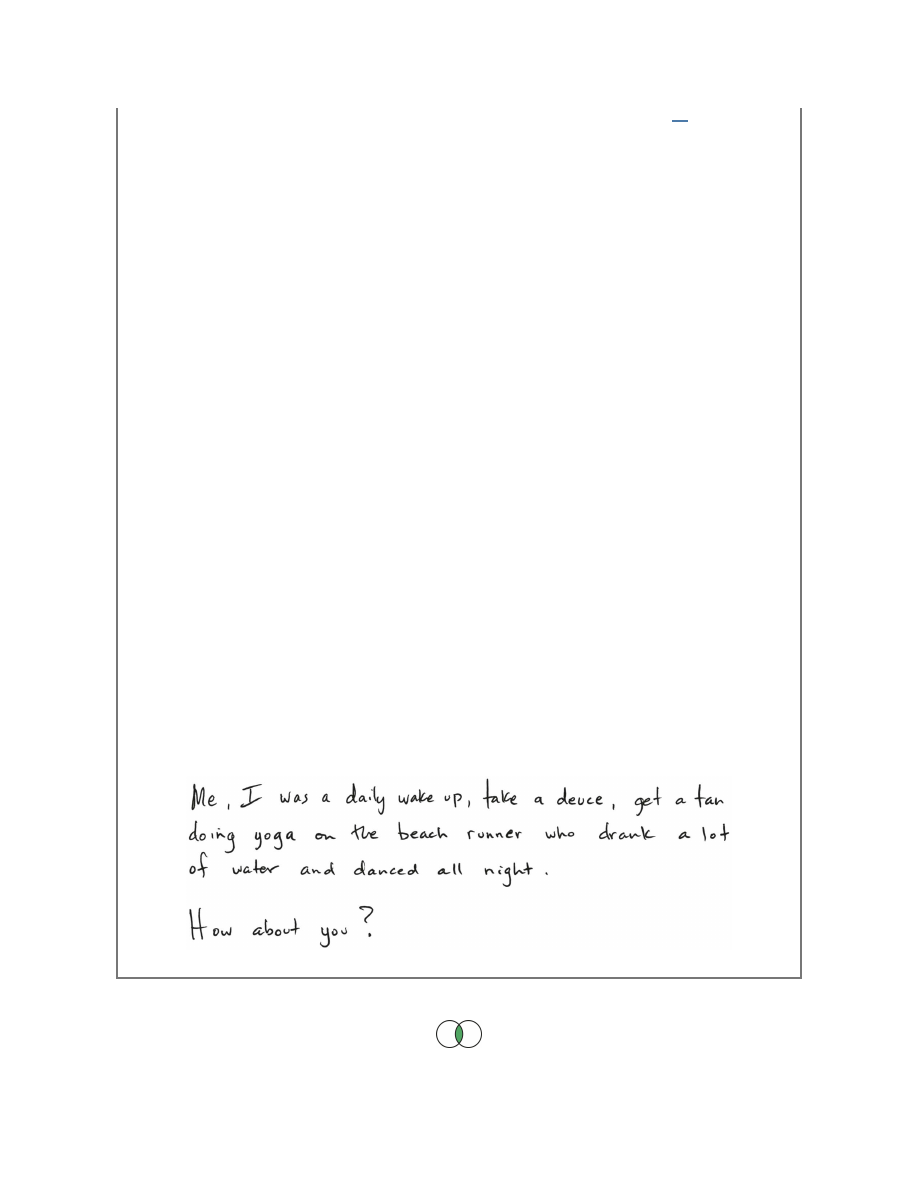 Me, I was a daily wake up, take a deuce, get a tan
doing yoga on the beach runner who drank a lot
of water and danced all night.
How about you?